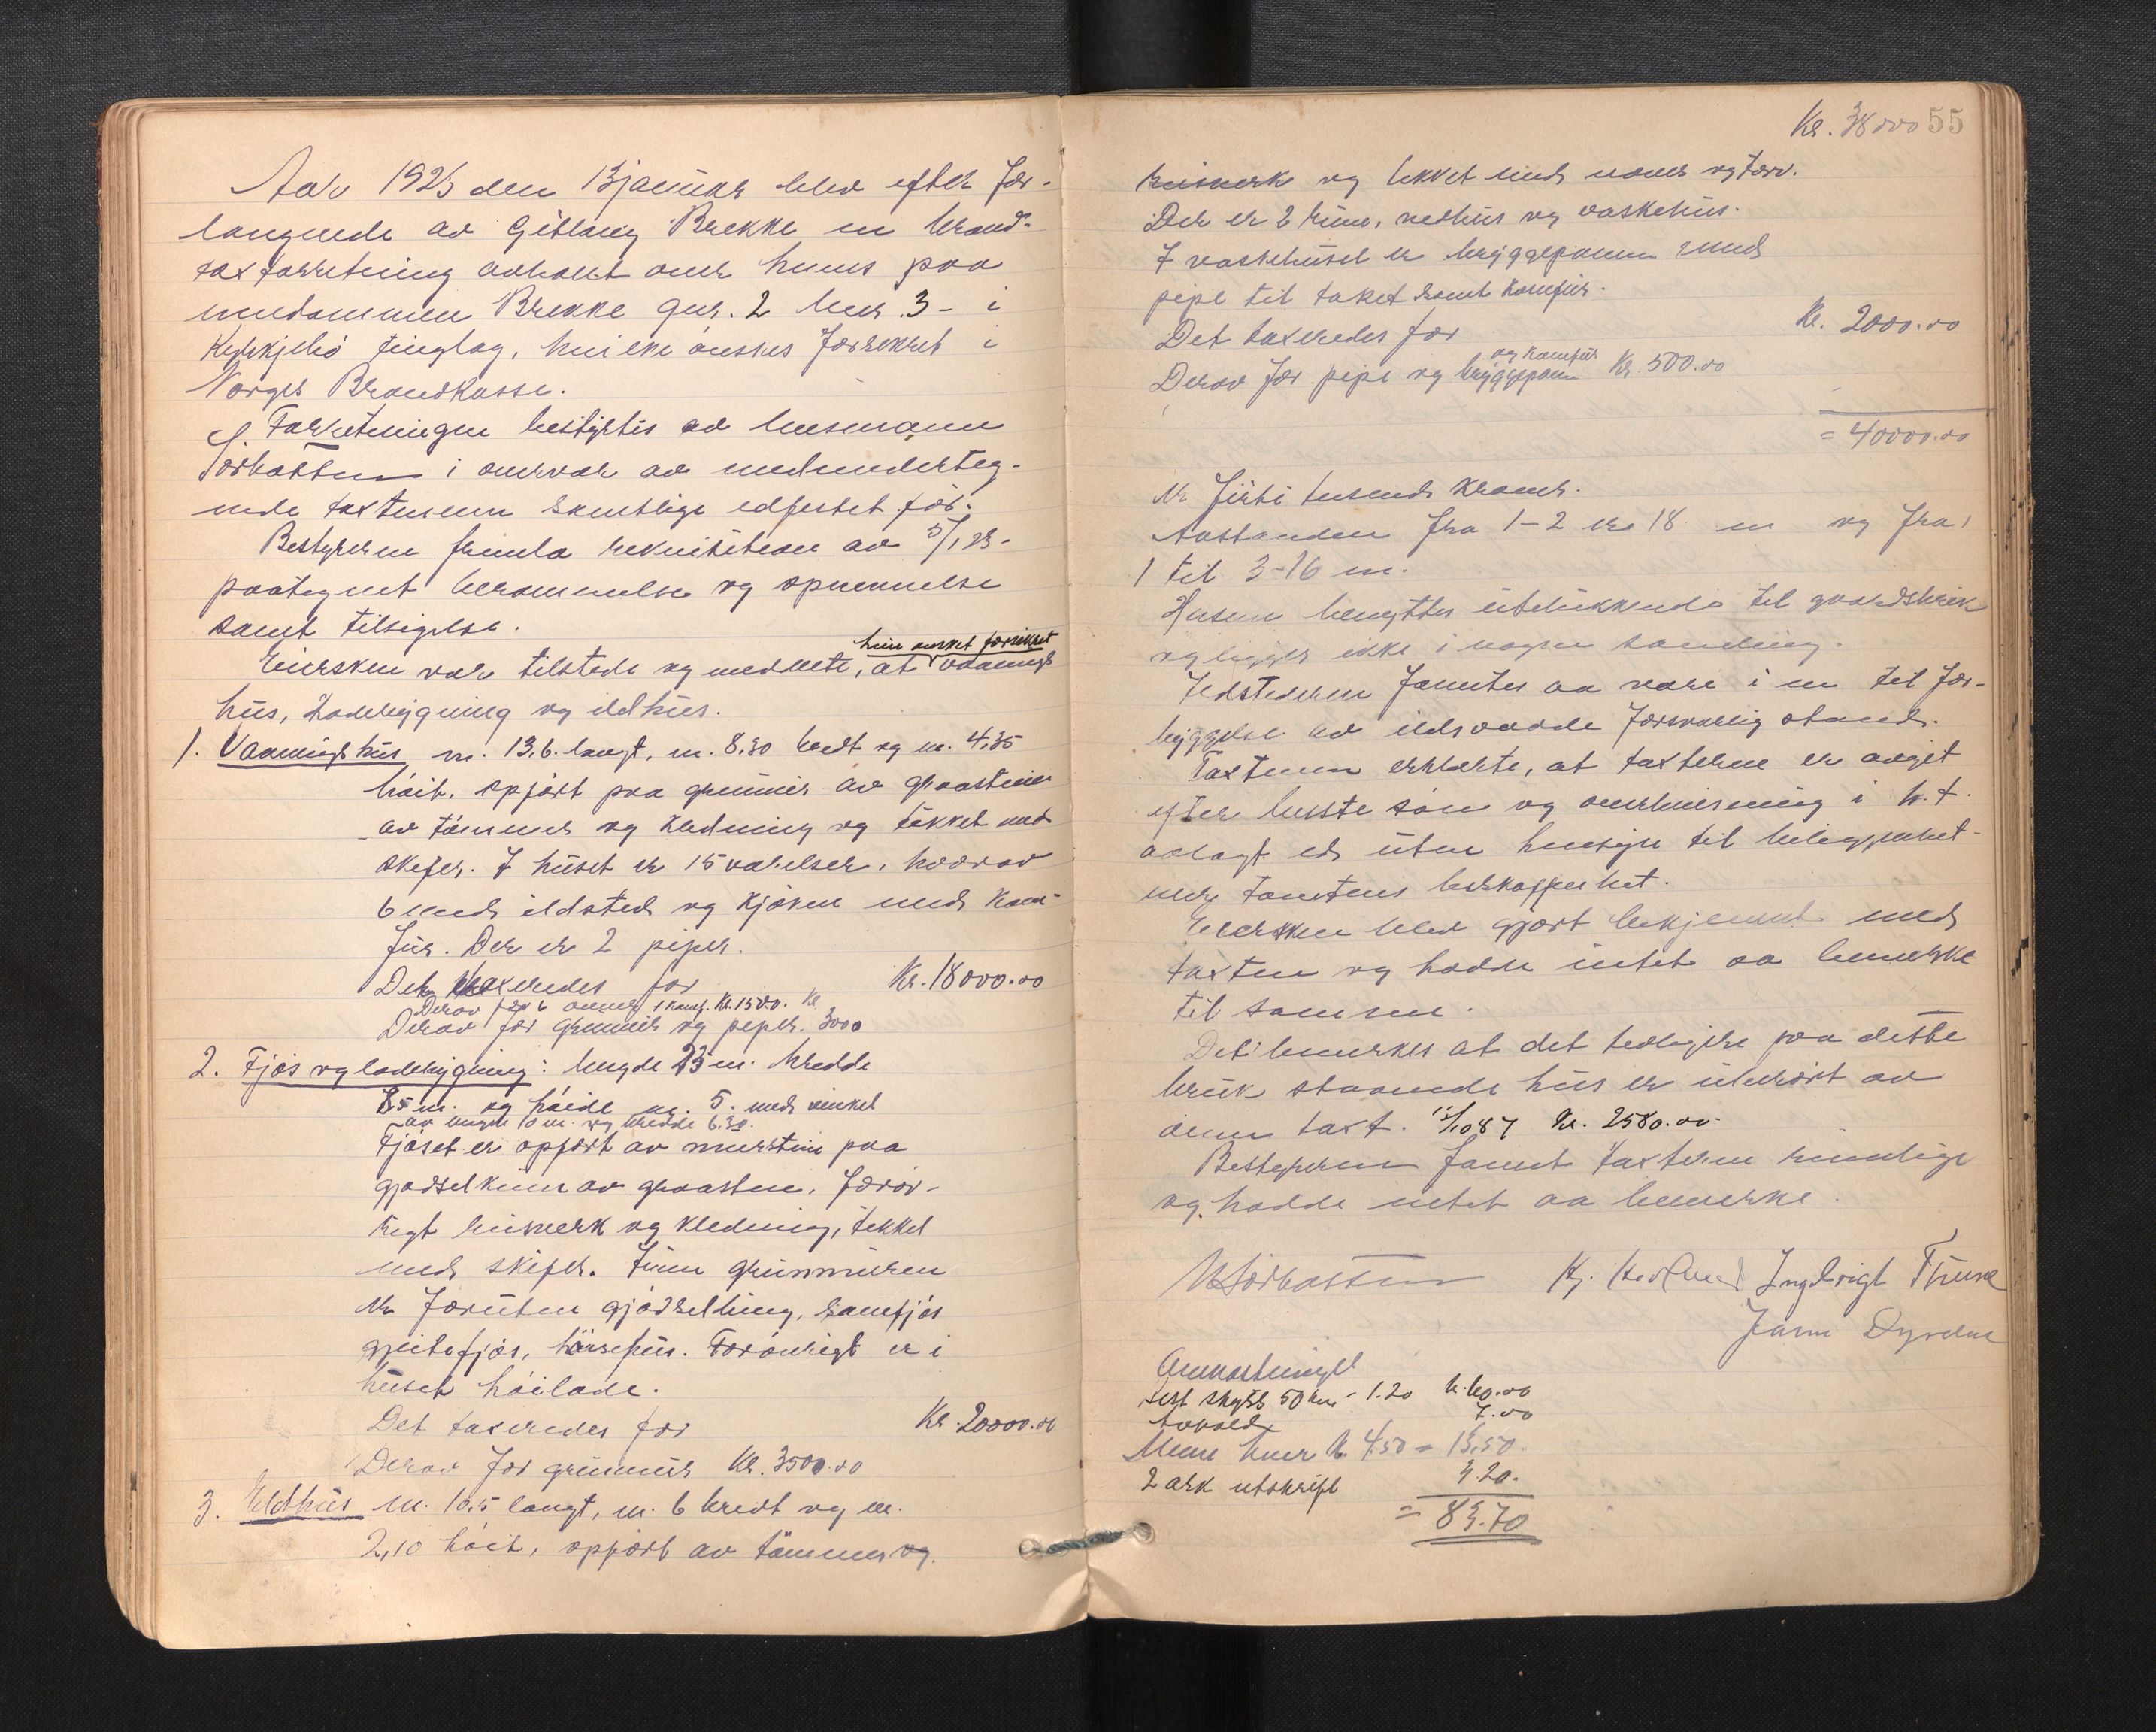 Aar 1923 den 13 januar blev efter for-
langende av Gitlaug Brekke en brand-
taxtforretning avholdt over husene paa
eiendommen Brekke gnr. 2 bnr. 3 - i
Kyrkjebø tinglag, hvilke ønskes forsikret i
Norges Brandkasse.
Forretningen bestyrtes av lensmann
i overvær av medunderteg-
nede taxtmenn samtlige edfestet før.
Bestyreren fremla rekvisition av 5/1 23 -
paategnet berammelse og opnevnelse
samt tilsigelse.
hun ønsket forsikret
Eiersken var tilstede og meddelte, at vaanings
hus, ladebygning og ildhus.
1. Vaaningshus m. 13,6. langt, m. 8,30 bredt og m. 4,35
høit, opført paa grunnmur av graasten
av tømmer og kledning og tekket med
skifer. I huset er 15 værelser, hvorav
6 med ildsted og kjøken med kom-
fur. Der er 2 piper.
Det taxeredes for Kr. 18000.00
Derav for 6 ovner 1 komf. Kr. 1500. Kr
Derav for grunnmur og piper. 3000
2. Fjøs og ladebygning: lengde 23 m. bredde
8,5 m. og høide m. 5. med vinkel
av lengde 10 m. og bredde 6.30.
Fjøset er opført av murstein paa
gjødselkum av graasten, forøv-
rigt bisverk og kledning, tekket
med skifer. Innen grunnmuren
er foruten gjødselbing, saufjøs
gjeitefjøs, hønsehus. Forøvrigt er i
huset høilade.
Det taxeredes for Kr. 20000.00
Derav for grunnmur Kr. 3500.00
3. Eldhus m. 10,5 langt, m. 6 bredt og m.
2,10 høit, opført av tømmer og
Kr. 38000 55
bisverk og tekket med never og torv.
Der er 2 rum, vedhus og vaskehus.
I vaskehuset er bryggepanne med
pipe til taket samt komfur.
Det taxeredes for Kr. 2000.00
og komfur
Derav for pipe og bryggepanne Kr. 500.00
= 40000.00
er firti tusend kroner.
Avstanden fra 1-2 er 18 m og fra
1 til 3-16 m.
Husene benyttes utelukkende til gaardsbruk
og ligger ikke i nogen samling.
Ildstederne fantes aa være i en til for-
byggelse av ildsvaade forsvarlig stand.
Taxtmenn erklærte, at taxterne er avgit
efter beste skjøn og overbevisning i h.t.
avlagt ed uten hensyn til beliggenhet
eller tomtens beskaffenhet.
Eiersken blev gjort bekjennt med
taxten og hadde intet aa bemerke
til samme.
Det bemerkes at det tidligere paa dette
bruk staaende hus er utført av
denne taxt. 15/10 87 Kr. 2580.00
Bestyreren fannt taxterne rimelige
og hadde intet aa bemerke.
Ingebrigt
Omkostninger
50 km - 1.20 kr. 60.00
7.00
Menn hver kr. 4.50 = 13.50
2 ark utskrift 3.20.
= 83.70